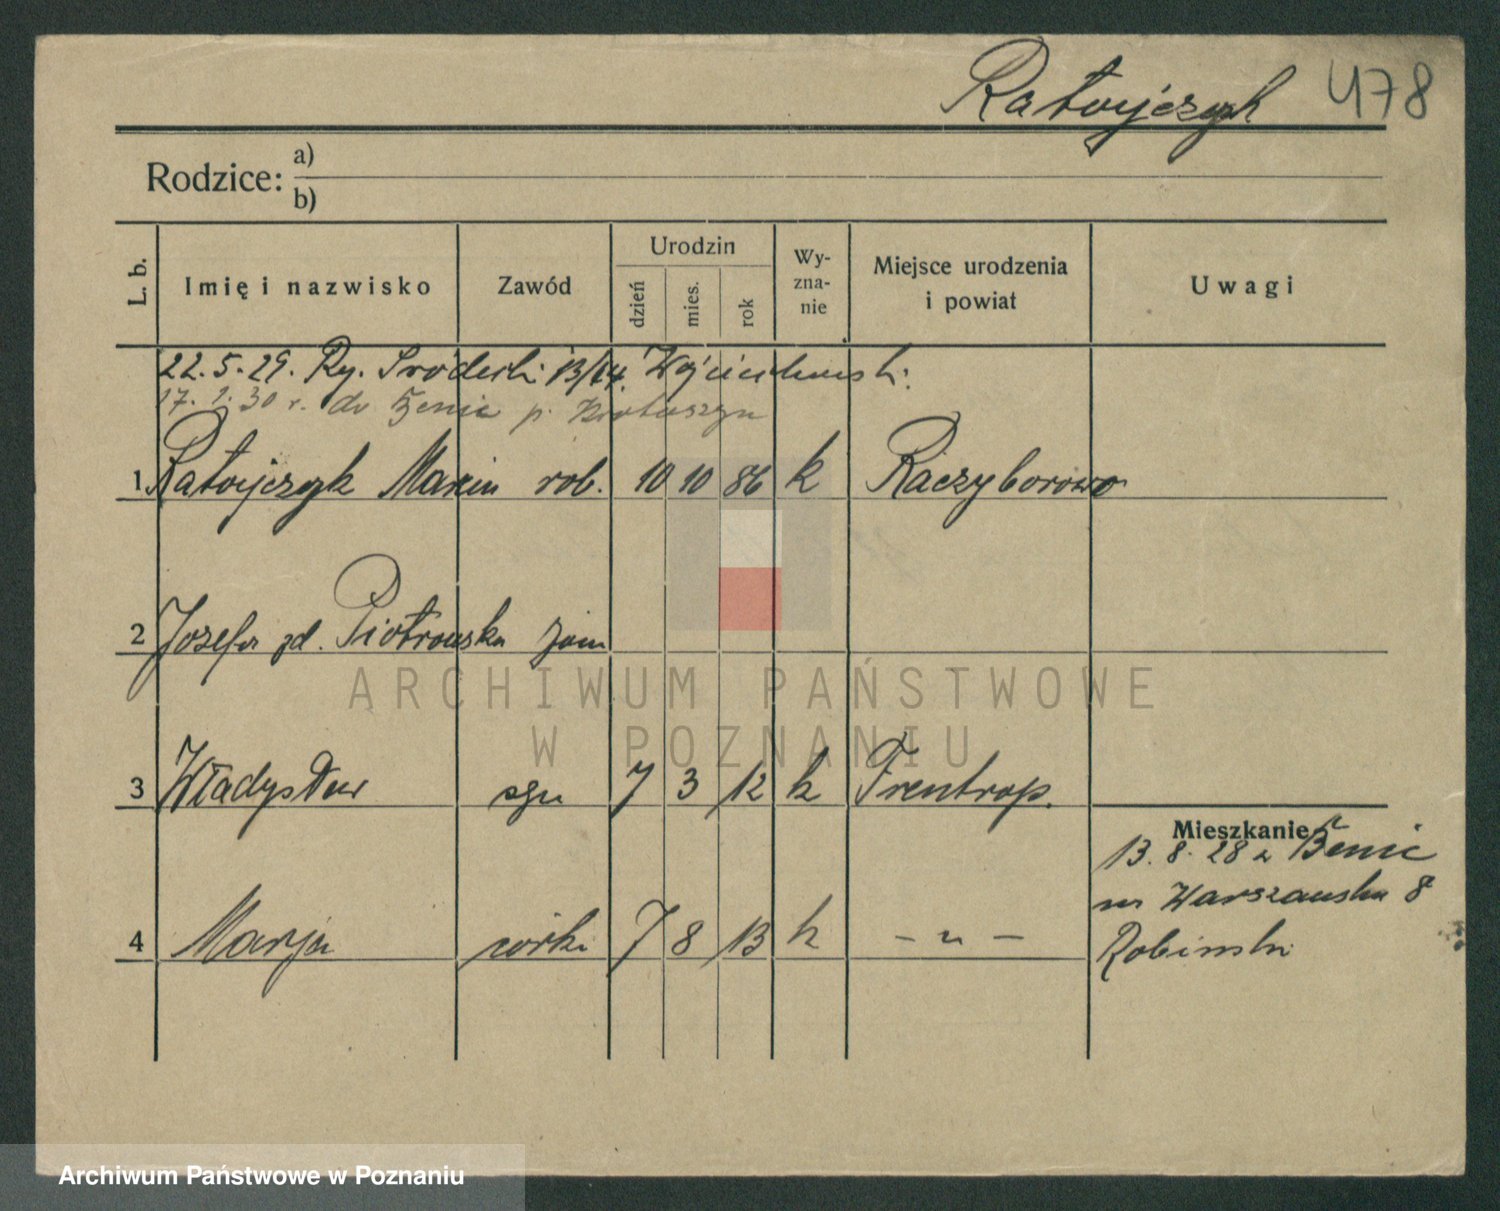 Ratajczyk 478
Rodzice: a)
b)
L. b.
Imię i nazwisko
Zawód
Urodzin
dzień
mies.
rok
Wy-
zna-
nie
Miejsce urodzenia
i powiat
Uwagi
22.5.29. Ry. Śródecki 13/14. Wojciechowski.
17. 30 r. do Benic p. Krotoszyn
1 Ratajczyk Marcin rob. 10 10 86 k Raczyborowo
2 Józefa zd. Piotrowska zam
3 Władysław syn 7 3 12 k Frentrop.
4 Marja córka 7 8 13 k – „ –
Mieszkanie
13. 8. 28 z Benic
na Warszawska 8
Robinski
ARCHIWUM PAŃSTWOWE
W POZNANIU
Archiwum Państwowe w Poznaniu